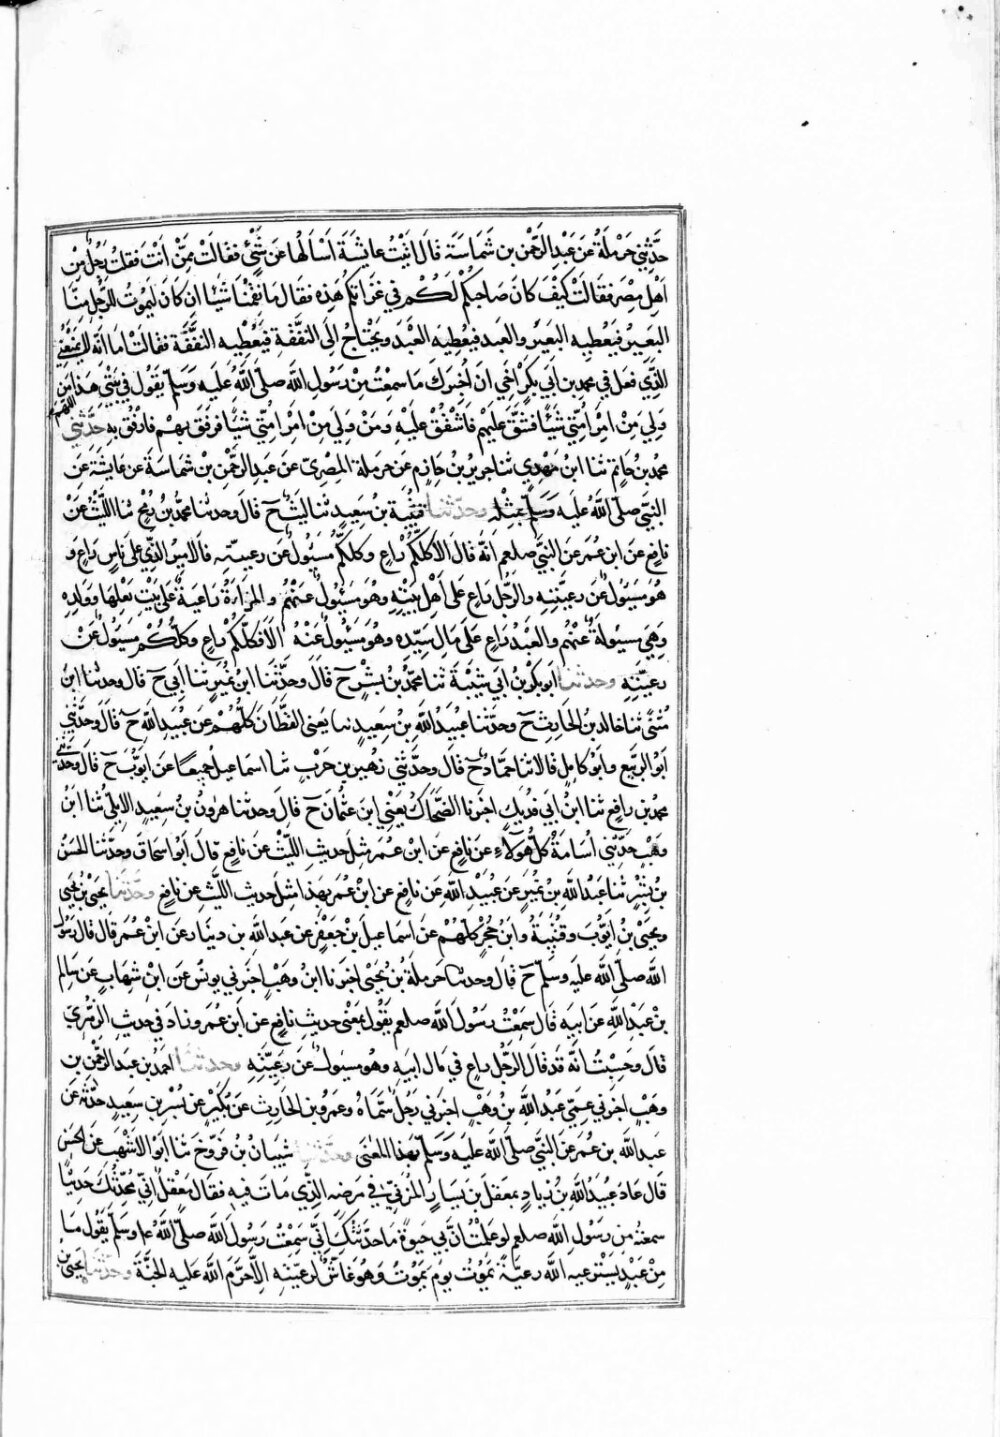 حدثني حرملة عن عبد الرحمن بن شماسة قال اتيت عايشة اسألها عن شئ فقالت ممن انت فقلت رجل من
اهل مصر فقالت كيف كان صاحبكم لكم في غزاتكم هذه فقال ما نقمنا شيئا ان كان ليموت للرجل منا
البعير فيعطيه البعير والعبد فيعطيه العبد ويحتاج الى النفقة فيعطيه النفقة فقالت اما انه لا يمنعني
الذي فعل في محمد بن ابي بكر اخي ان اخبرك ما سمعت من رسول الله صلى الله عليه وسلم يقول في بيتي هذا اللهم من
ولي من امر امتي شيئا فشق عليهم فاشقق عليه ومن ولي من امر امتي شيئا فرفق بهم فارفق به حدثني
محمد بن حاتم ثنا ابن مهدي ثنا جرير بن حازم عن حرملة المصري عن عبد الرحمن بن شماسة عن عايشة عن
النبي صلى الله عليه وسلم بمثله وحدثنا قتيبة بن سعيد ثنا ليث ح قال وحدثنا محمد بن رمح ثنا الليث عن
نافع عن ابن عمر عن النبي صلعم انه قال الا كلكم راع وكلكم مسيول عن رعيته فالامير الذي على ناس راع و
هو مسيول عن رعيته والرجل راع على اهل بيته وهو مسئول عنهم والمراة راعية على بيت بعلها وولده
وهي مسيولة عنهم والعبد راع على مال سيده وهو مسئول عنه الا فكلكم راع وكلكم مسيول عن
رعيته وحدثنا ابو بكر بن ابي شيبة ثنا محمد بن بشر ح قال وحدثنا ابن نمير ثنا ابي ح قال وحدثنا ابن
مثنى ثنا خالد بن الحارث ح وحدثنا عبيد الله بن سعيد ثنا يعنى القطان كلهم عن عبيد الله ح قال وحدثني
ابو الربيع وابو كامل قالا ثنا حماد ح قال وحدثني زهير بن حرب ثنا اسماعيل جميعا عن ايوب ح قال وحدثني
محمد بن رافع ثنا ابن ابي فديك اخبرنا الضحاك يعني ابن عثمان ح قال وحدثنا هرون بن سعيد الايلي ثنا ابن
وهب حدثني اسامة كل هولاء عن نافع عن ابن عمر مثل حديث الليث عن نافع قال ابو اسحاق وحدثنا الحسن
بن بشر ثنا عبد الله بن نمير عن عبيد الله عن نافع عن ابن عمر بهذا مثل حديث الليث عن نافع وحدثنا يحيى بن يحيى
ويحيى بن ايوب وقتيبة وابن حجر كلهم عن اسماعيل بن جعفر عن عبد الله بن دينار عن ابن عمر قال قال رسول
الله صلى الله عليه وسلم ح قال وحدثنا حرملة بن يحيى اخبرنا ابن وهب اخبرني يونس عن ابن شهاب عن سالم
بن عبد الله عن ابيه قال سمعت رسول الله صلعم يقول بمعنى حديث نافع عن ابن عمر وزاد في حديث الزهري
قال وحسبت انه قد قال الرجل راع في مال ابيه وهو مسيول عن رعيته وحدثنا احمد بن عبد الرحمن بن
وهب اخبرني عمي عبد الله بن وهب اخبرني رجل سماه وعمرو بن الحارث عن بكير عن بسر بن سعيد حدثه عن
عبد الله بن عمر عن النبي صلى الله عليه وسلم بهذا المعنى وحدثنا شيبان بن فروخ ثنا ابو الاشهب عن الحسن
قال عاد عبيد الله بن زياد معقل بن يسار المزني في مرضه الذي مات فيه فقال معقل اني محدثك حديثا
سمعته من رسول الله صلعم لو علمت ان بي حيوة ما حدثتك اني سمعت رسول الله صلى الله ع وسلم يقول ما
من عبد يسترعيه الله رعية يموت يوم يموت وهو غاش لرعيته الا حرم الله عليه الجنة وحدثنا يحيى بن